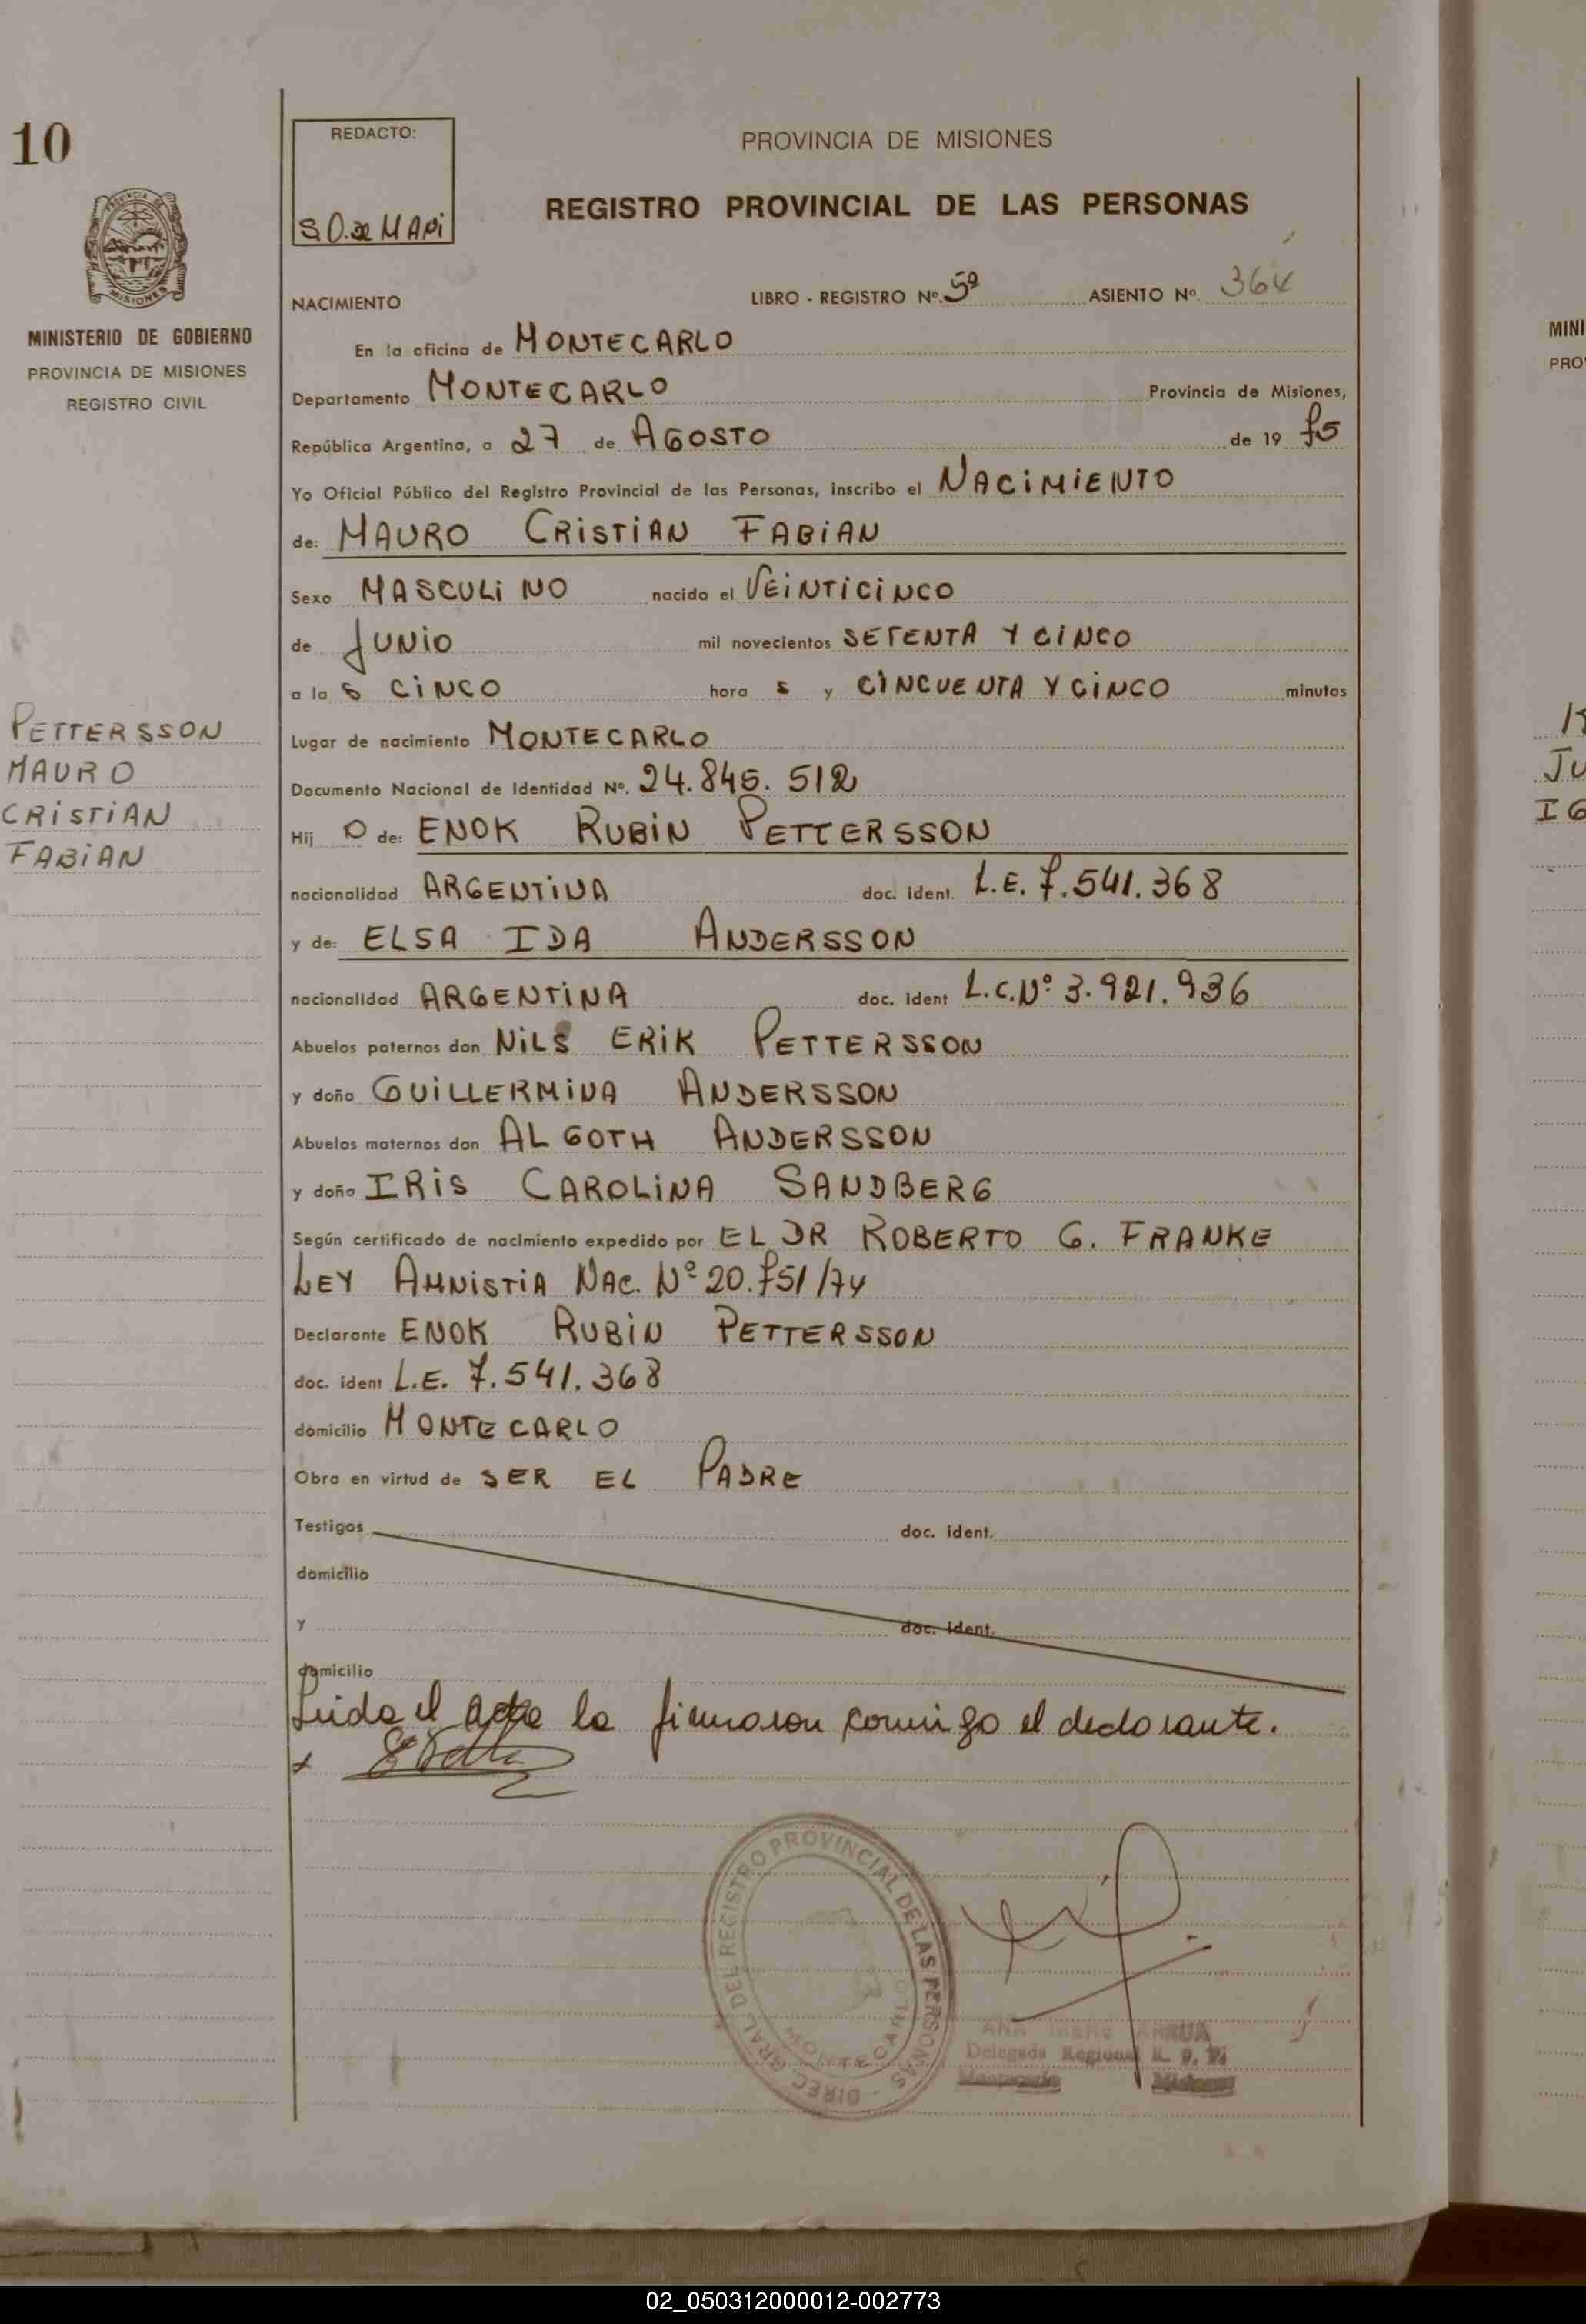 10
PROVINCIA DE MISIONES
MISIONES
MINISTERIO DE GOBIERNO
PROVINCIA DE MISIONES
REGISTRO CIVIL
PETTERSSON
MAURO
CRISTIAN
FABIAN
REDACTO:
S.O. de MAPi
PROVINCIA DE MISIONES
REGISTRO PROVINCIAL DE LAS PERSONAS
NACIMIENTO LIBRO - REGISTRO Nº. 5º ASIENTO Nº 364
En la oficina de MONTECARLO
Departamento MONTECARLO Provincia de Misiones,
República Argentina, a 27 de AGOSTO de 19 75
Yo Oficial Público del Registro Provincial de las Personas, inscribo el NACIMIENTO
de: MAURO CRISTIAN FABIAN
Sexo MASCULINO nacido el VEINTICINCO
de JUNIO mil novecientos SETENTA Y CINCO
a la s CINCO hora s y CINCUENTA Y CINCO minutos
Lugar de nacimiento MONTECARLO
Documento Nacional de Identidad Nº. 24.845.512
Hij O de: ENOK RUBIN PETTERSSON
nacionalidad ARGENTINA doc. ident. L.E. 7.541.368
y de: ELSA IDA ANDERSSON
nacionalidad ARGENTINA doc. ident L.C.Nº 3.921.936
Abuelos paternos don NILS ERIK PETTERSSON
y doña GUILLERMINA ANDERSSON
Abuelos maternos don ALGOTH ANDERSSON
y doña IRIS CAROLINA SANDBERG
Según certificado de nacimiento expedido por EL DR ROBERTO G. FRANKE
LEY AMNISTIA NAC. Nº 20.751/74
Declarante ENOK RUBIN PETTERSSON
doc. ident L.E. 7.541.368
domicilio MONTECARLO
Obra en virtud de SER EL PADRE
Testigos doc. ident.
domicilio
y doc. ident.
domicilio
Leida el acta la firmaron conmigo el declarante.
DIREC. GRAL. DEL REGISTRO PROVINCIAL DE LAS PERSONAS -
MONTECARLO
ANA IRENE ARRUA
Delegada Regional R. P. P.
Montecarlo Misiones
MINI
PRO
JU
IG
02_050312000012-002773